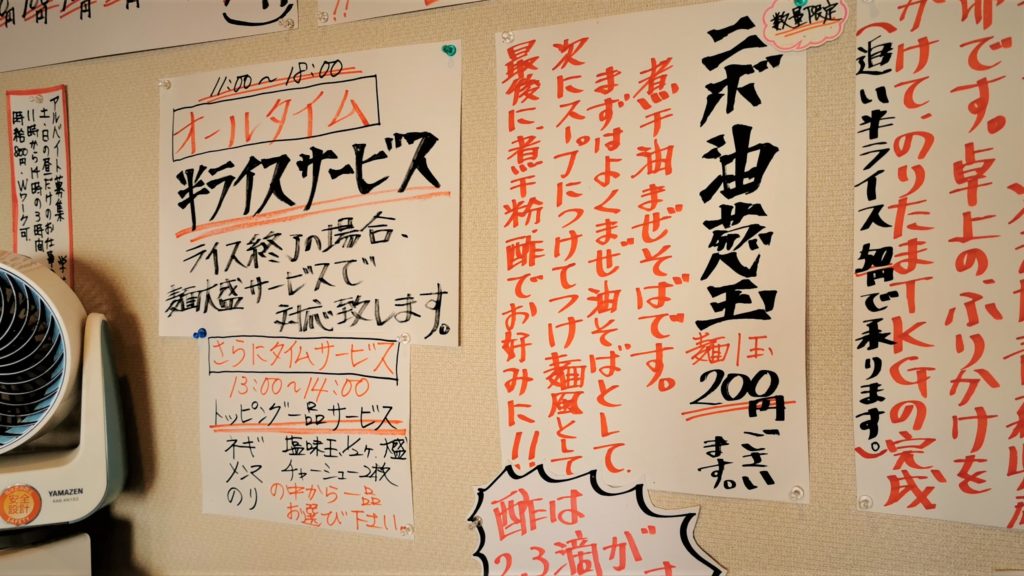 アルバイト募集
土・日の昼だけのお仕事
時給800円・Wワーク可
11:00〜18:00
オールタイム
半ライスサービス
ライス終了の場合、
麺大盛サービスで
対応致します。
さらにタイムサービス
13:00〜14:00
トッピング一品サービス
ネギ 塩味玉1/2ヶ
メンマ チャーシュー2枚
のり の中から一品
お選び下さい。
数量限定
ニボ油惹玉
麺1玉、200円ございます。
煮干油まぜそばです。
まずはよくまぜ油そばとして、
次にスープにつけてつけ麺風として
最後に、煮干粉、酢でお好みに!!
酢は
2.3滴が
です。卓上の、ふりかけを
かけて、のりたまTKGの完成
(追い半ライス 50円で承ります。)
YAMAZEN
安全
設計